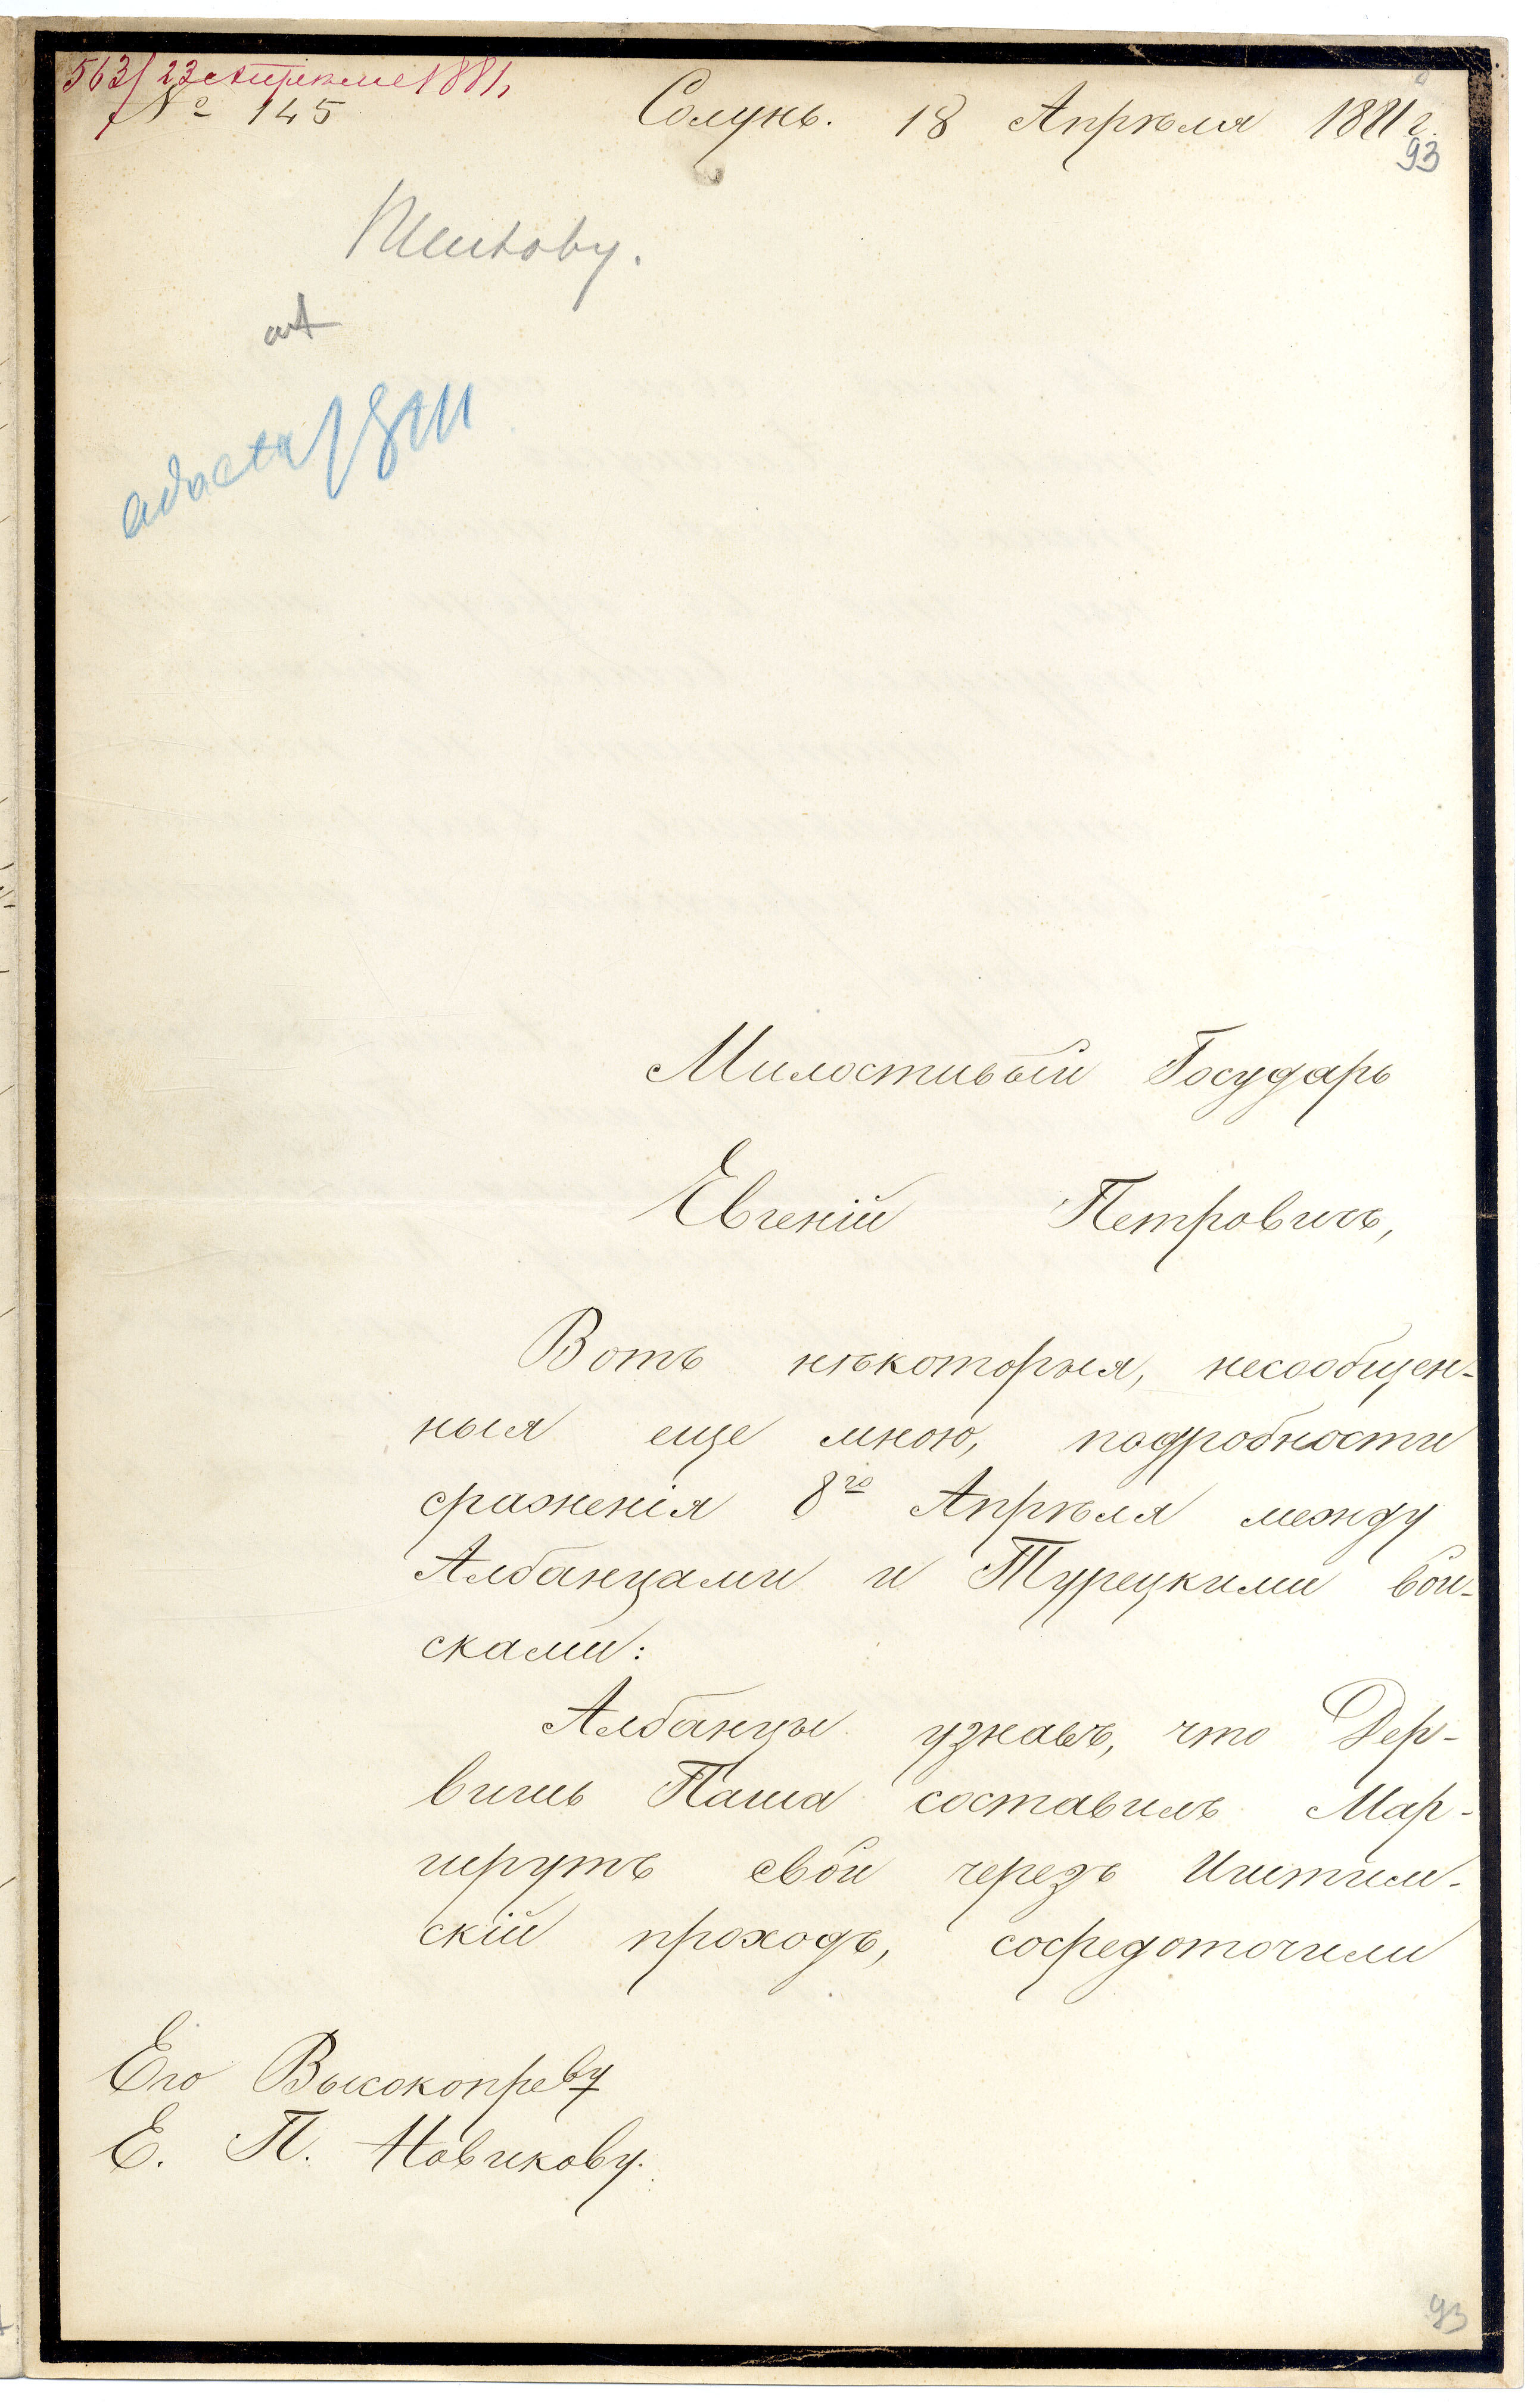 563/23 Апрѣля 1881,
№ 145
Солунь. 18 Апрѣля 1881 г.
93
ad acta
Милостивый Государь
Евгеній Петровичъ,
Вотъ нѣкоторыя, несообщен-
ныя еще мною, подробности
сраженія 8го Апрѣля между
Албанцами и Турецкими вой-
сками:
Албанцы узнавъ, что Дер-
вишь Паша составилъ Мар-
шрутъ свой черезъ Иштим-
скій проходъ, сосредоточили
Его Высокопреву
Е. П. Новикову.
93